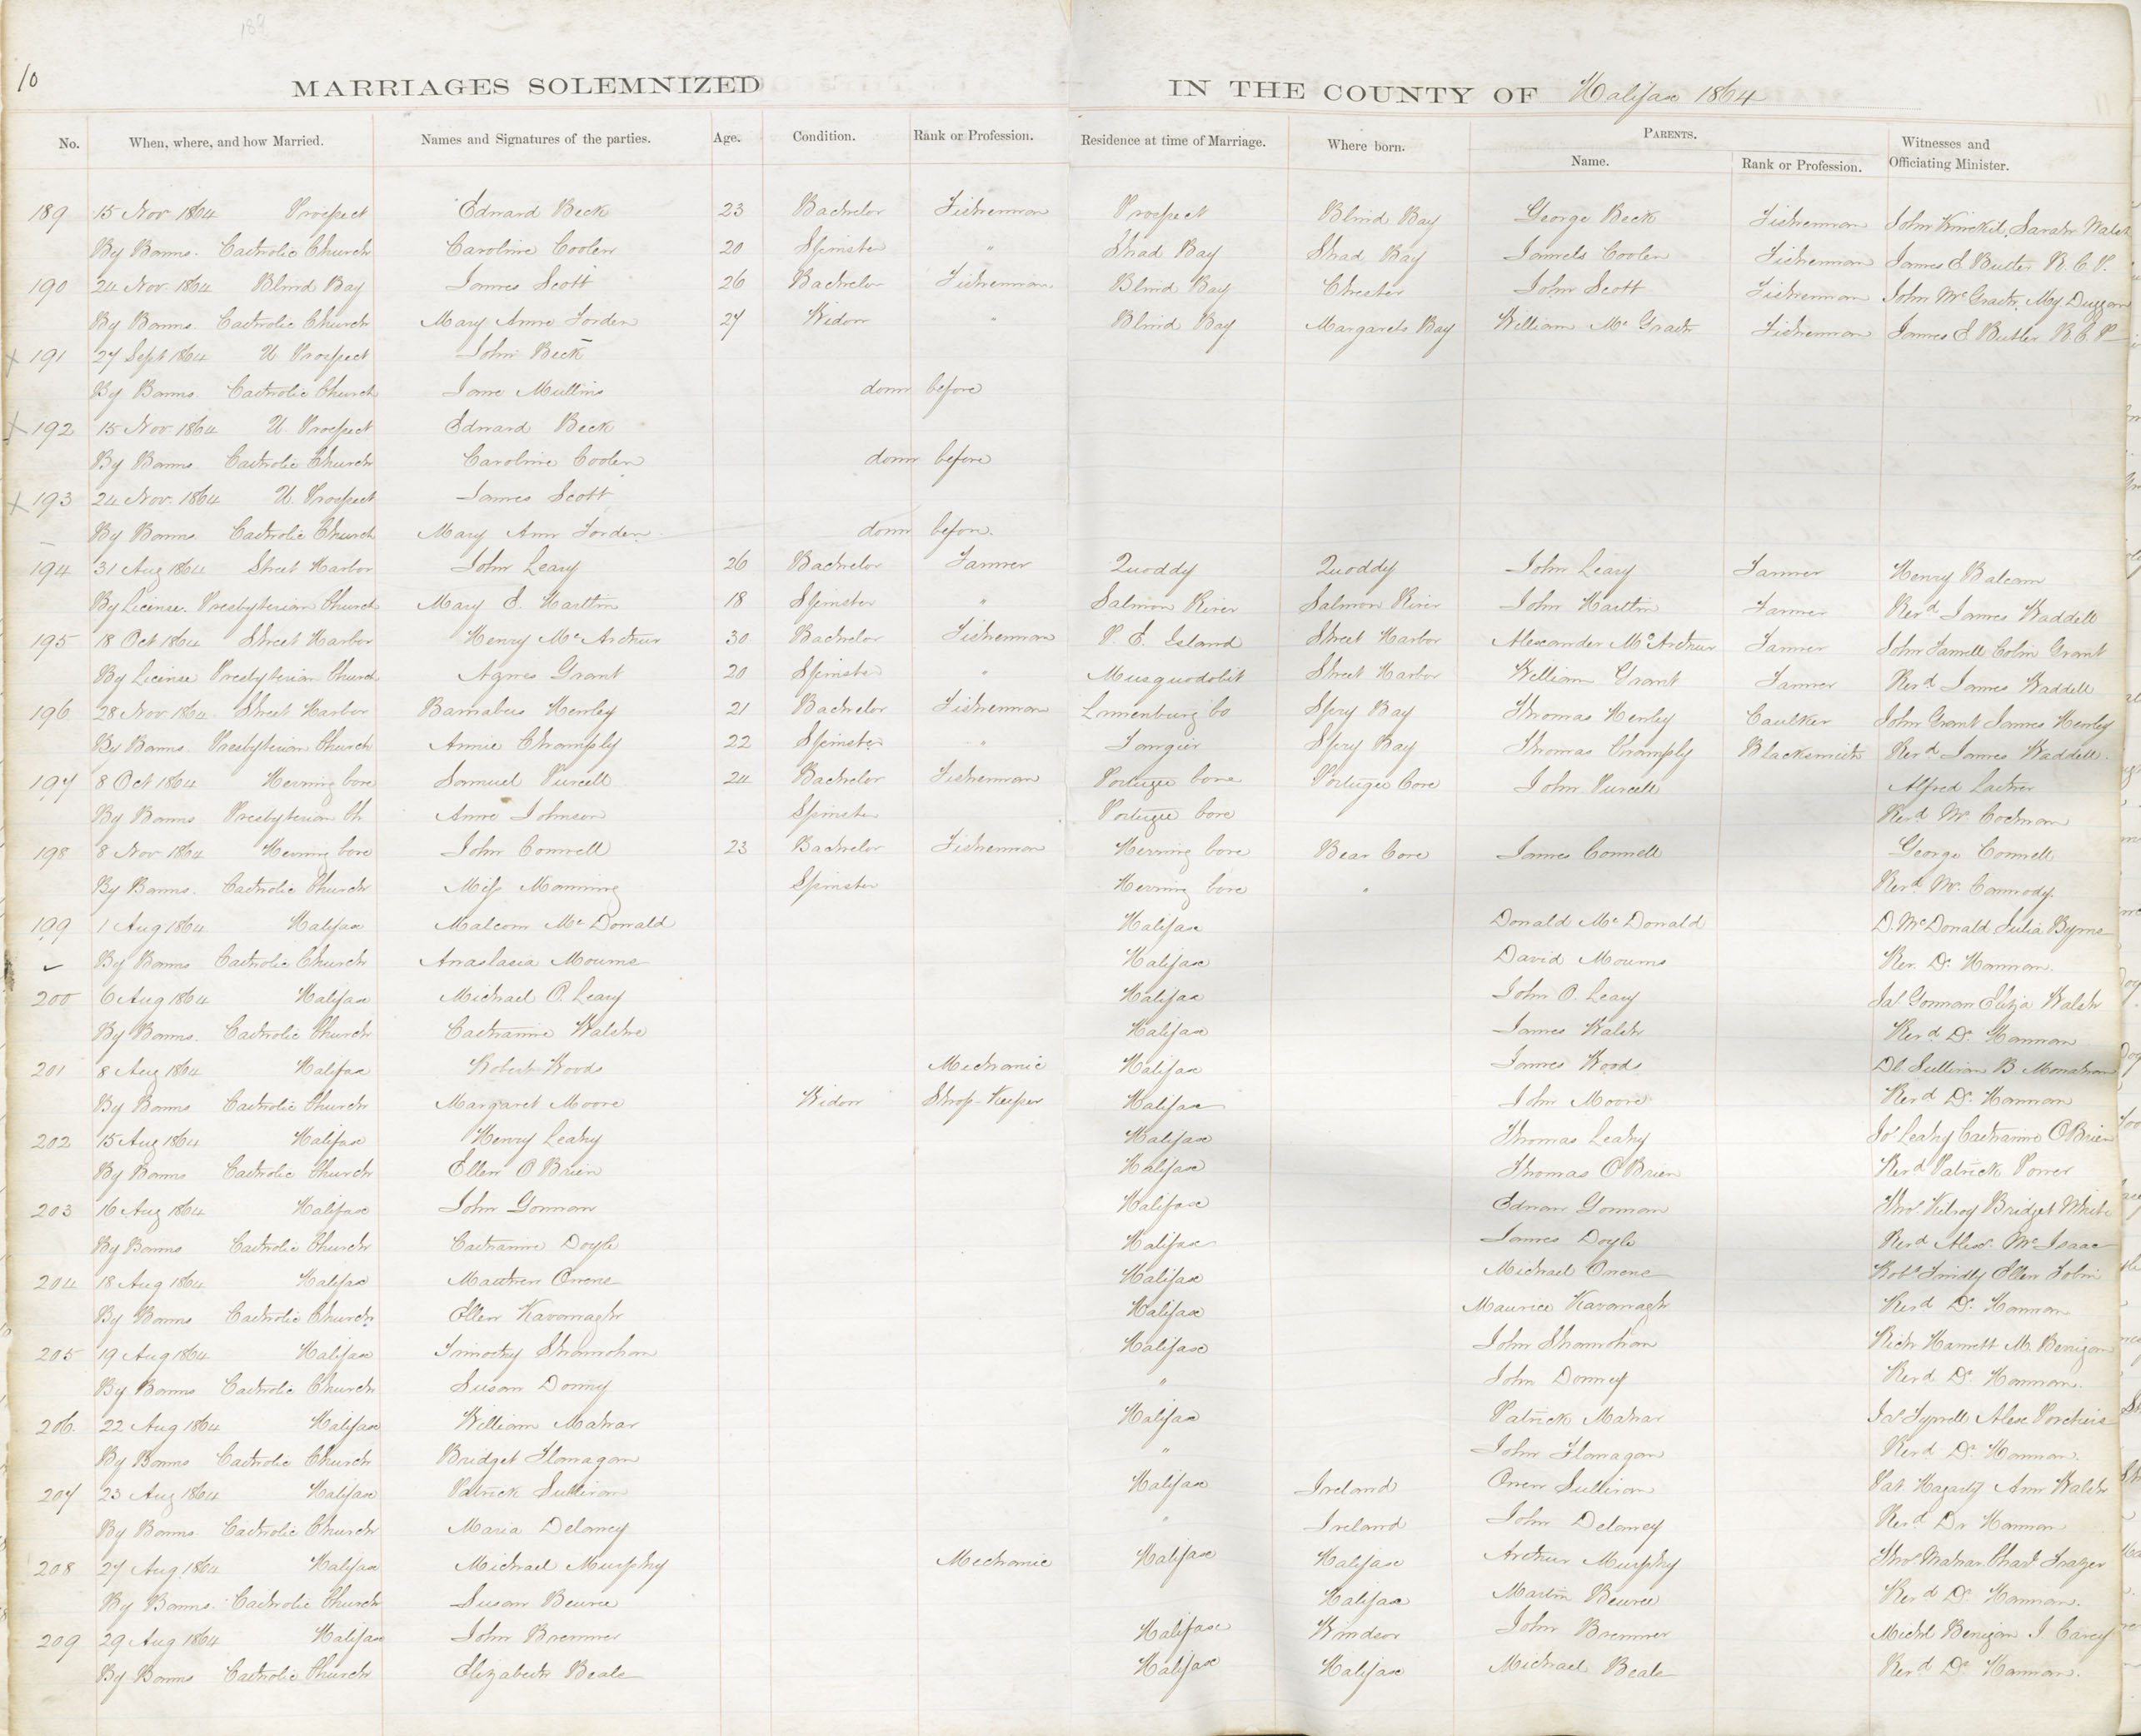 10
MARRIAGES SOLEMNIZED IN THE COUNTY OF Halifax 1864
No. When, where, and how Married. Names and Signatures of the parties. Age. Condition. Rank or Profession. Residence at time of Marriage. Where born. PARENTS. Name. Rank or Profession. Witnesses and Officiating Minister.
189 15 Nov 1864 Prospect Edward Beck 23 Bachelor Fisherman Prospect Blind Bay George Beck Fisherman John Kinckil, Sarah Walsh
By Banns. Catholic Church Caroline Coolen 20 Spinster " Shad Bay Shad Bay Coolen Fisherman James E Butler R. C. P.
190 24 Nov 1864 Blind Bay James Scott 26 Bachelor Fisherman Blind Bay Chester John Scott Fisherman John McGrath, My Duggan
By Banns. Catholic Church Mary Anne Jorden 27 Widow " Blind Bay Margarets Bay William McGrath Fisherman James E Butler R. C. P
X 191 27 Sept 1864 U Prospect John Beck
By Banns. Catholic Church Jane Mullins down before
X 192 15 Nov 1864 U. Prospect Edward Beck
By Banns Catholic Church Caroline Coolen down before
X 193 24 Nov. 1864 U. Prospect James Scott
By Banns Catholic Church Mary Ann Jorden down before.
194 31 Aug 1864 Sheet Harbor John Leary 26 Bachelor Farmer Quoddy Quoddy John Leary Farmer Henry Balcam
By License. Presbyterian Church Mary E. Hartlin 18 Spinster " Salmon River Salmon River John Hartlin Farmer Revd James Waddell
195 18 Oct 1864 Sheet Harbor Henry McArthur 30 Bachelor Fisherman P. E. Island Sheet Harbor Alexander McArthur Farmer John Farrell Colin Grant
By License Presbyterian Church Agnes Grant 20 Spinster " Musquodobit Sheet Harbor William Grant Farmer Revd James Waddell
196 28 Nov 1864 Sheet Harbor Barnabus Henley 21 Bachelor Fisherman Lunenburg Co Spry Bay Thomas Henley Caulker John Grant James Henley
By Banns. Presbyterian Church Annie Chromply 22 Spinster " Tangier Spry Bay Thomas Chromply Blacksmith Revd James Waddell.
197 8 Oct 1864 Herring Cove Samuel Purcell 24 Bachelor Fisherman Portugee Cove Portugee Cove John Purcell Alfred Lather
By Banns Presbyterian Ch Anne Johnson Spinster Portugee Cove Revd Mr Cochran
198 8 Nov 1864 Herring Cove John Connell 23 Bachelor Fisherman Herring Cove Bear Cove James Connell George Connell
By Banns. Catholic Church Miss Manning Spinster Herring Cove " Revd Mr. Carmody.
199 1 Aug 1864 Halifax Malcom McDonald Halifax Donald McDonald D. McDonald Julia Byrne
By Banns Catholic Church Anastasia Mourns Halifax David Mourns Rev. Dr. Hannan.
200 6 Aug 1864 Halifax Michael O. Leary Halifax John O. Leary Jas Gorman Eliza Walsh
By Banns. Catholic Church Catharine Walshe Halifax James Walsh Revd Dr. Hannan
201 8 Aug 1864 Halifax Robert Woods Mechanic Halifax James Woods Dl. Sullivan B. Monahan
By Banns Catholic Church Margaret Moore Widow Shop-Keeper Halifax John Moore Revd Dr. Hannan
202 15 Aug 1864 Halifax Henry Leahy Halifax Thomas Leahy Jos Leahy Catharine O'Brien
By Banns Catholic Church Ellen O'Brien Halifax Thomas O'Brien Revd Patrick Power
203 16 Aug 1864 Halifax John Gorman Halifax Edward Gorman Thos. Kilroy Bridget White
By Banns Catholic Church Catharine Doyle Halifax James Doyle Revd Alexr. McIsaac
204 18 Aug 1864 Halifax Mathew Owens Halifax Michael Owens Robt Ellen Tobin
By Banns Catholic Church Ellen Kavanagh Halifax Maurice Kavanagh Revd Dr. Hannan
205 19 Aug 1864 Halifax Timothy Shanahan Halifax John Shanahan Rich Harnett M. Benigan
By Banns Catholic Church Susan Downey " John Downey Revd Dr. Hannan.
206. 22 Aug 1864 Halifax William Mahar Halifax Patrick Mahar Jas Tyrrell Alex
By Banns Catholic Church Bridget Flanagan " John Flanagan Revd Dr. Hannan.
207 23 Aug 1864 Halifax Patrick Sullivan Halifax Ireland Owen Sullivan Pat. Hagarty Ann Walsh
By Banns Catholic Church Maria Delaney " Ireland John Delaney Revd Dr Hannan
208 27 Aug 1864 Halifax Michael Murphy Mechanic Halifax Halifax Arthur Murphy Thos. Mahar Chas. Frazer
By Banns. Catholic Church Susan Beurce Halifax Martin Beurce Revd Dr. Hannan.
209 29 Aug 1864 Halifax John Bremner Halifax Windsor John Bremner Michl Benigan J. Carey
By Banns Catholic Church Elizabeth Beale Halifax Halifax Michael Beale Revd Dr. Hannan.